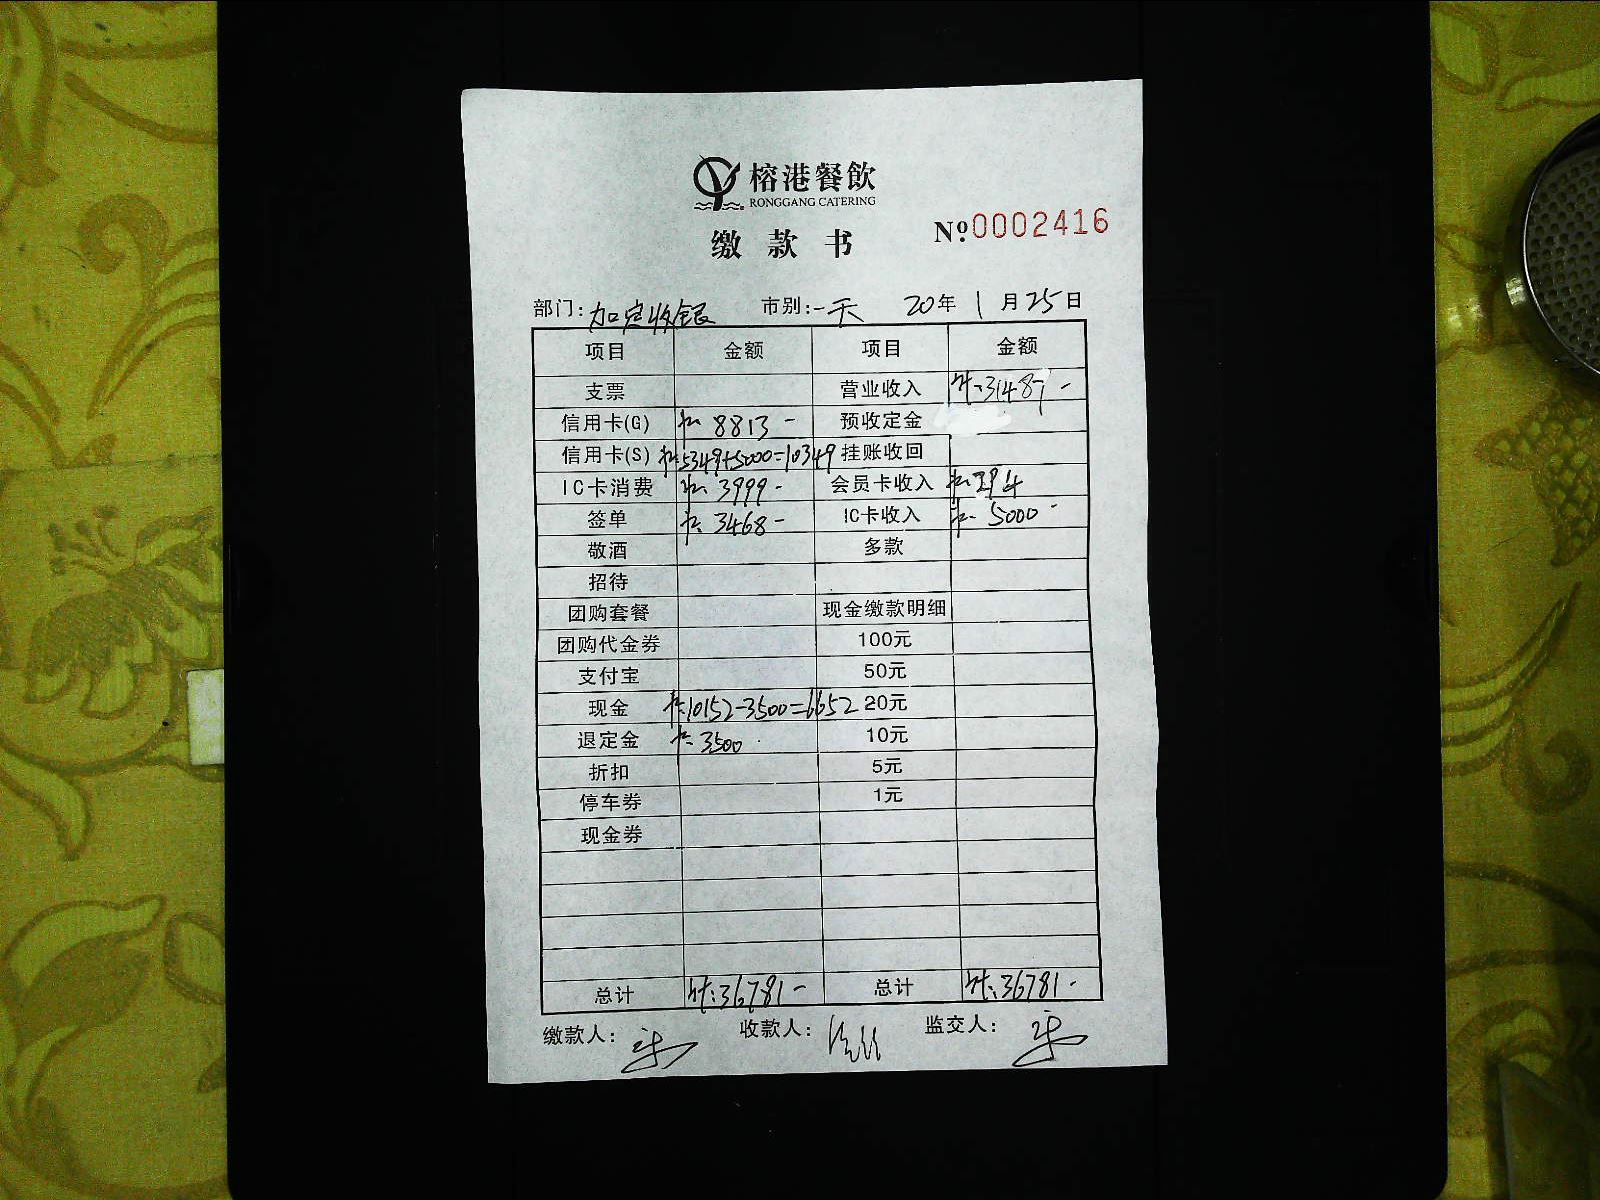 榕港餐飲
RONGGANG CATERING
缴款书 Nº:0002416
部门: 加定收银 市别: 一天 20年 1月25日
项目 金额 项目 金额
支票 营业收入 31487-
信用卡(G) 8813- 预收定金
信用卡(S) 5349+5000=10349 挂账收回
IC卡消费 3999- 会员卡收入 294
签单 3468- IC卡收入 5000-
敬酒 多款
招待
团购套餐 现金缴款明细
团购代金券 100元
支付宝 50元
现金 10152-3500=6652 20元
退定金 3500 10元
折扣 5元
停车券 1元
现金券
总计 36781- 总计 36781-
缴款人: 收款人: 监交人: